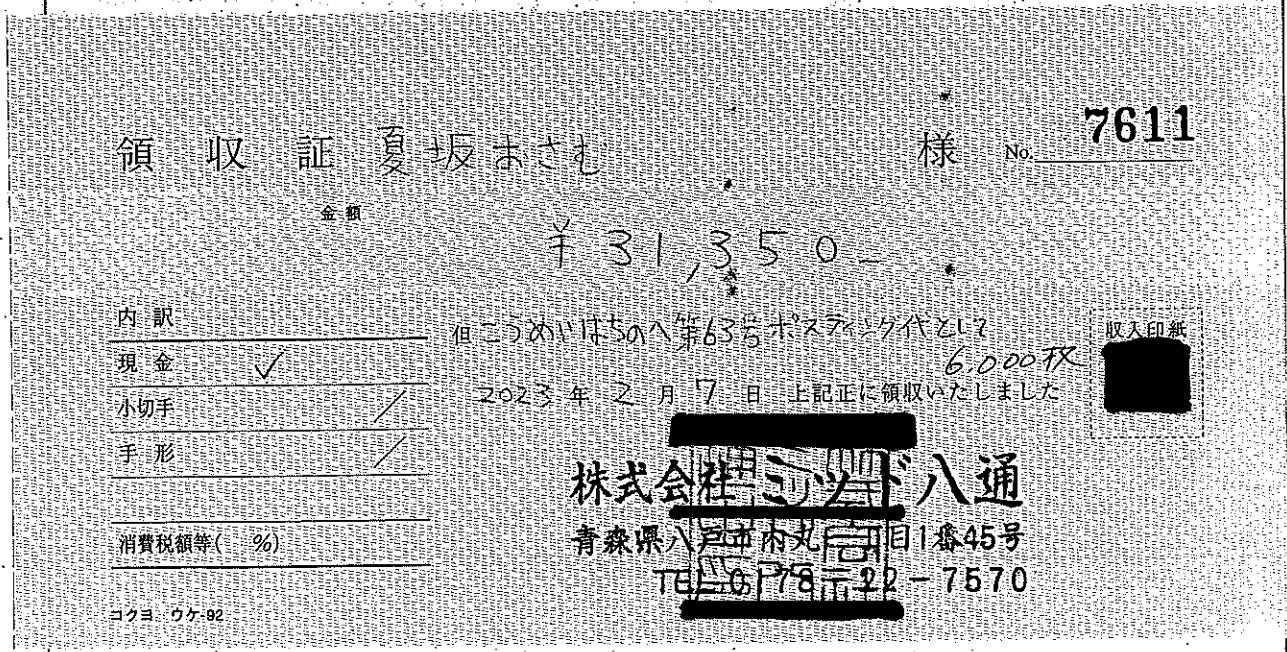 領収証 夏坂おさむ 様 No. 7611
金額
¥31,350-
内訳
現金 ✓
小切手 /
手形 /
消費税額等( %)
コクヨ ウケ-92
但こうめいはちのへ第63号ポスティング代として
6,000枚
2023年2月7日 上記正に領収いたしました
収入印紙
株式会社ミッド八通
青森県八戸市内丸 目1番45号
TEL 0178-22-7570